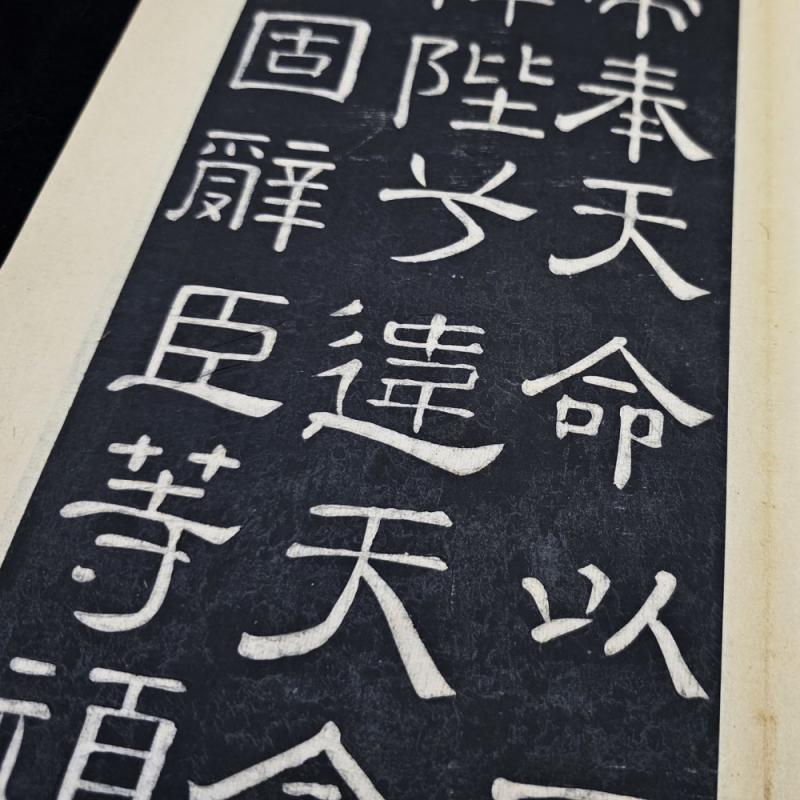 帝奉天命以
陛兮違天命
固辭臣等頑